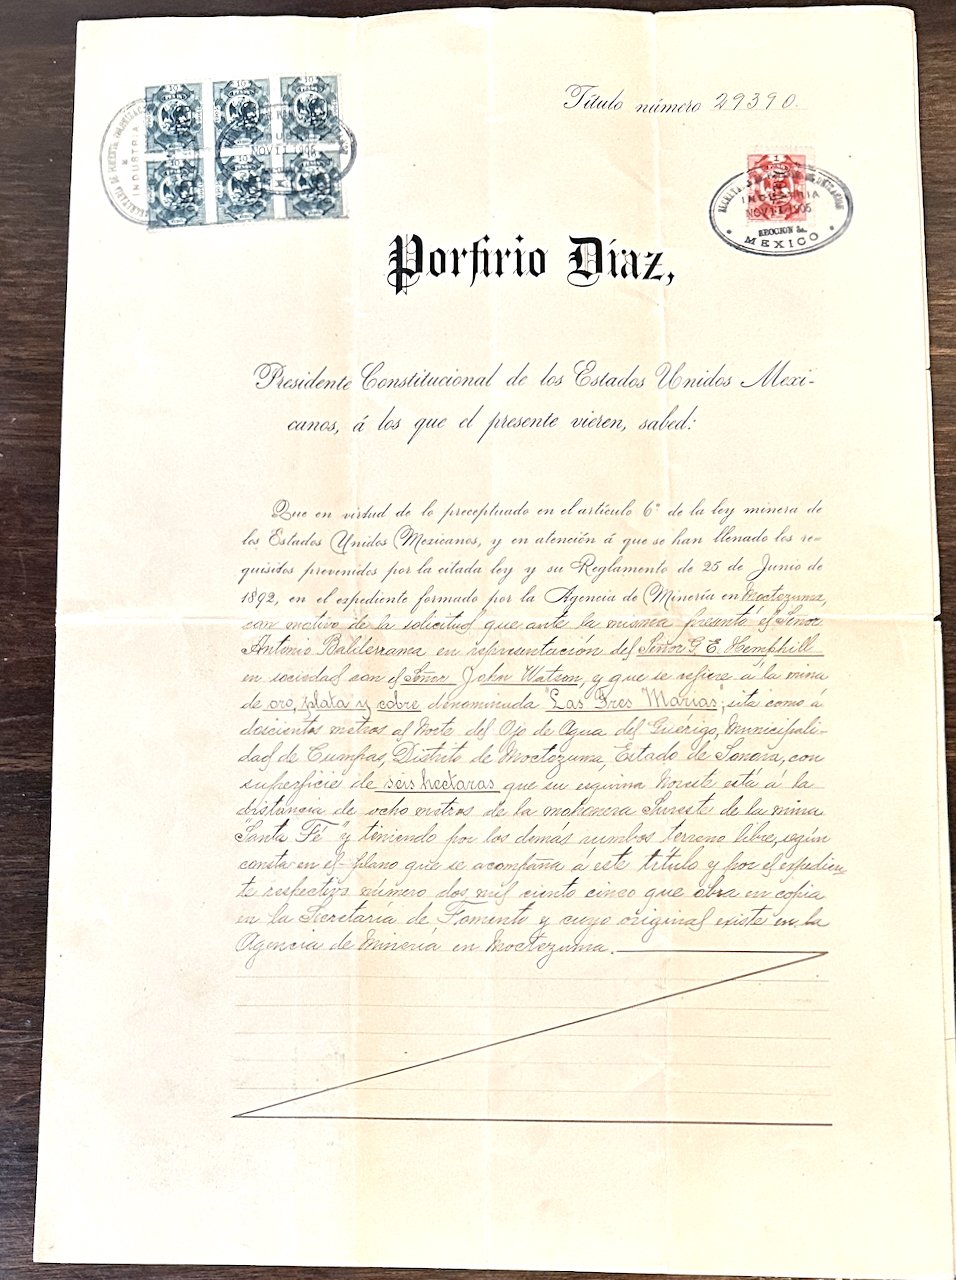 Título número 29390.
SECRETARIA DE FOMENTO, COLONIZACION
INDUSTRIA
NOV 11 1905
10
10
10
10
10
10
1
SECRETARIA DE FOMENTO, COLONIZACION
INDUSTRIA
NOV 11 1905
SECCION 2a.
MEXICO
Porfirio Díaz,
Presidente Constitucional de los Estados Unidos Mexi-
canos, á los que el presente vieren, sabed:
Que en virtud de lo preceptuado en el artículo 6º de la ley minera de
los Estados Unidos Mexicanos, y en atención á que se han llenado los re-
quisitos prevenidos por la citada ley y su Reglamento de 25 de Junio de
1892, en el expediente formado por la Agencia de Minería en Moctezuma,
con motivo de la solicitud que ante la misma presentó el Señor
Antonio Balderrama en representación del Señor G. E. Hemphill
en sociedad con el Señor John Watson, y que se refiere á la mina
de oro, plata y cobre denominada "Las Tres Marias", sita como á
doscientos metros al Norte del Ojo de Agua del Guérigo, Municipali-
dad de Cumpas, Distrito de Moctezuma, Estado de Sonora, con
superficie de seis hectaras que su esquina Noreste está á la
distancia de ocho metros de la mohonera Sureste de la mina
"Santa Fé" y teniendo por los demás rumbos terreno libre, según
consta en el plano que se acompaña á este título y por el expedien
te respectivo número dos mil ciento cinco que obra en copia
en la Secretaría de Fomento y cuyo original existe en la
Agencia de Minería en Moctezuma.